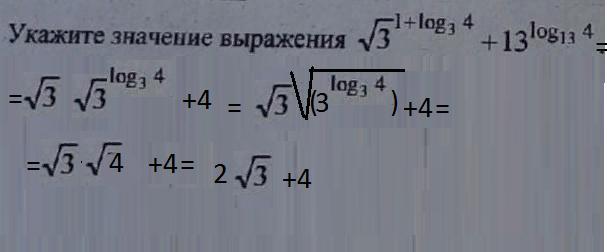 Укажите значение выражения √3^(1+log₃ 4) + 13^(log₁₃ 4) =
=√3 √3^(log₃ 4) +4 = √3√(3^(log₃ 4)) +4=
=√3·√4 +4= 2√3 +4